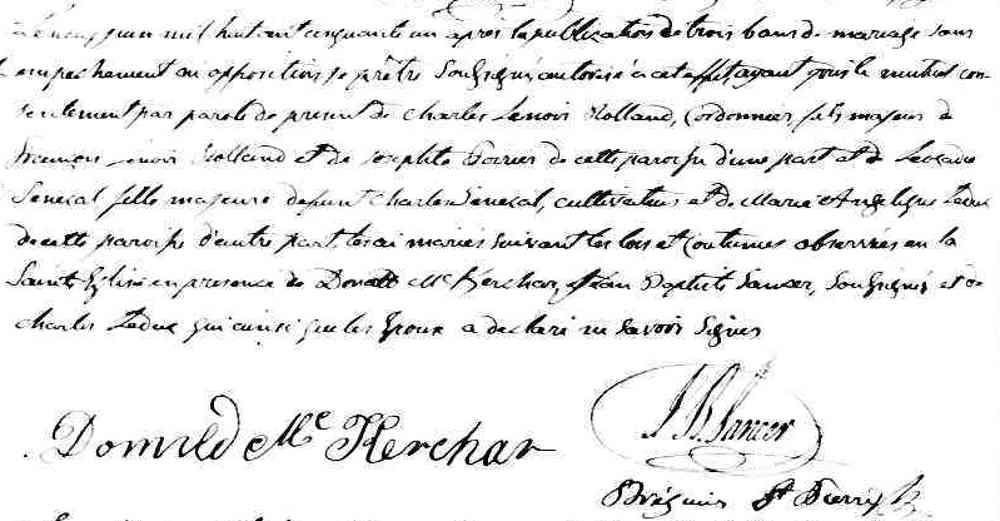 Le neuf juin mil huit cent cinquante un après la publication de trois bans de mariage sans
empechement ou opposition je prêtre soussigné autorisé à cet effet, ayant pris le mutuel con-
sentement par parole de present de Charles Lenoir Rolland, Cordonnier, fils majeur de
François Lenoir Rolland et de Josephte Poirier de cette paroisse d'une part et de Leocadie
Senecal fille majeure de feu Charles Senecal, cultivateur et de Marie Angelique Leduc
de cette paroisse d'autre part, les ai mariés suivant les lois et Coutumes observées en la
Sainte Eglise en presence de Donald Mc Kerchar, et Jean Baptiste Sancer, Soussignés et de
Charles Leduc qui ainsi que les Epoux a declaré ne savoir signer
Domild Mc Kerchar
J B Sancer
St Pierre